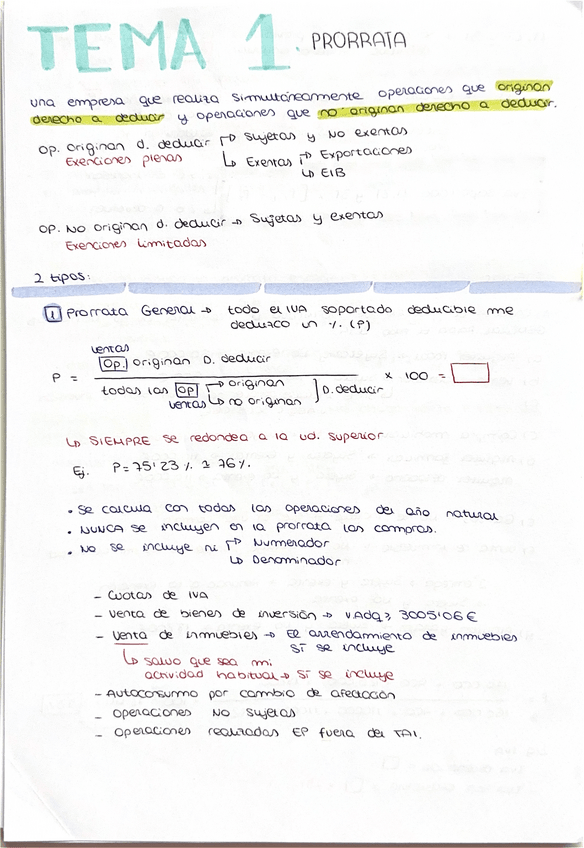 TEMA 1. PRORRATA
una empresa que realiza simultáneamente operaciones que originan
derecho a deducir y operaciones que no originan derecho a deducir.
op. originan d. deducir → Sujetas y No exentas
Exenciones plenas ↳ Exentas → Exportaciones
↳ EIB
op. No originan d. deducir → Sujetas y exentas
Exenciones Limitadas
2 tipos:
1 Prorrata General → todo el IVA soportado deducible me
deduzco un %. (P)
ventas
Op. originan D. deducir
P = x 100 =
todas las op → originan
ventas ↳ no originan ] D. deducir
↳ SIEMPRE se redondea a la ud. superior
Ej. P = 75'23 % ≈ 76 %.
• Se calcula con todas las operaciones del año natural
• NUNCA se incluyen en la prorrata las compras.
• No se incluye ni → Numerador
↳ Denominador
- Cuotas de IVA
- Venta de bienes de inversión → VAdq ≥ 3005'06 €
- Venta de inmuebles → El arrendamiento de inmuebles
SÍ se incluye
↳ salvo que sea mi
actividad habitual → SÍ se incluye
- Autoconsumo por cambio de afectación
- Operaciones No sujetas
- Operaciones realizadas EP fuera del TAI.